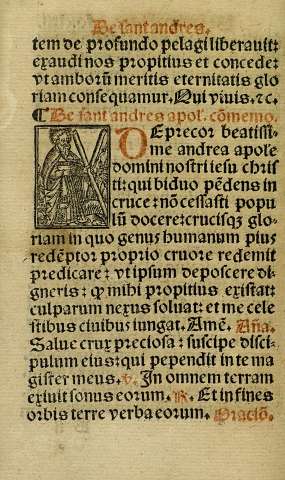 De sant andres.
tem de profundo pelagi liberauit:
exaudi nos propitius et concede:
vt amborū meritis eternitatis glo
riam consequamur. Qui viuis. ⁊c.
¶ De sant andres apol. cōmemo.
DEprecor beatissi-
me andrea apole
domini nostri iesu chris
ti: qui biduo pēdens in
cruce: nō cessasti popu
lū docere: crucisqꝫ glo-
riam in quo genus humanum pius
redēptor proprio cruore redemit
predicare: vt ipsum deposcere di-
gneris: ꝙ mihi propitius existat:
culparum nexus soluat: et me cele
stibus ciuibus iungat. Amē. Aña.
Salue crux preciosa: suscipe disci-
pulum eius: qui pependit in te ma
gister meus. v. In omnem terram
exiuit sonus eorum. R. Et in fines
orbis terre verba eorum. Oraciō.